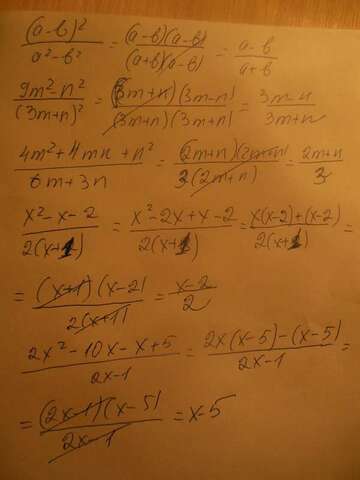 (a-b)²/(a²-b²) = (a-b)(a-b)/((a+b)(a-b)) = (a-b)/(a+b)
(9m²-n²)/(3m+n)² = (3m+n)(3m-n)/((3m+n)(3m+n)) = (3m-n)/(3m+n)
(4m²+4mn+n²)/(6m+3n) = (2m+n)(2m+n)/(3(2m+n)) = (2m+n)/3
(x²-x-2)/(2(x+1)) = (x²-2x+x-2)/(2(x+1)) = (x(x-2)+(x-2))/(2(x+1)) =
= (x+1)(x-2)/(2(x+1)) = (x-2)/2
(2x²-10x-x+5)/(2x-1) = (2x(x-5)-(x-5))/(2x-1) =
= (2x-1)(x-5)/(2x-1) = x-5